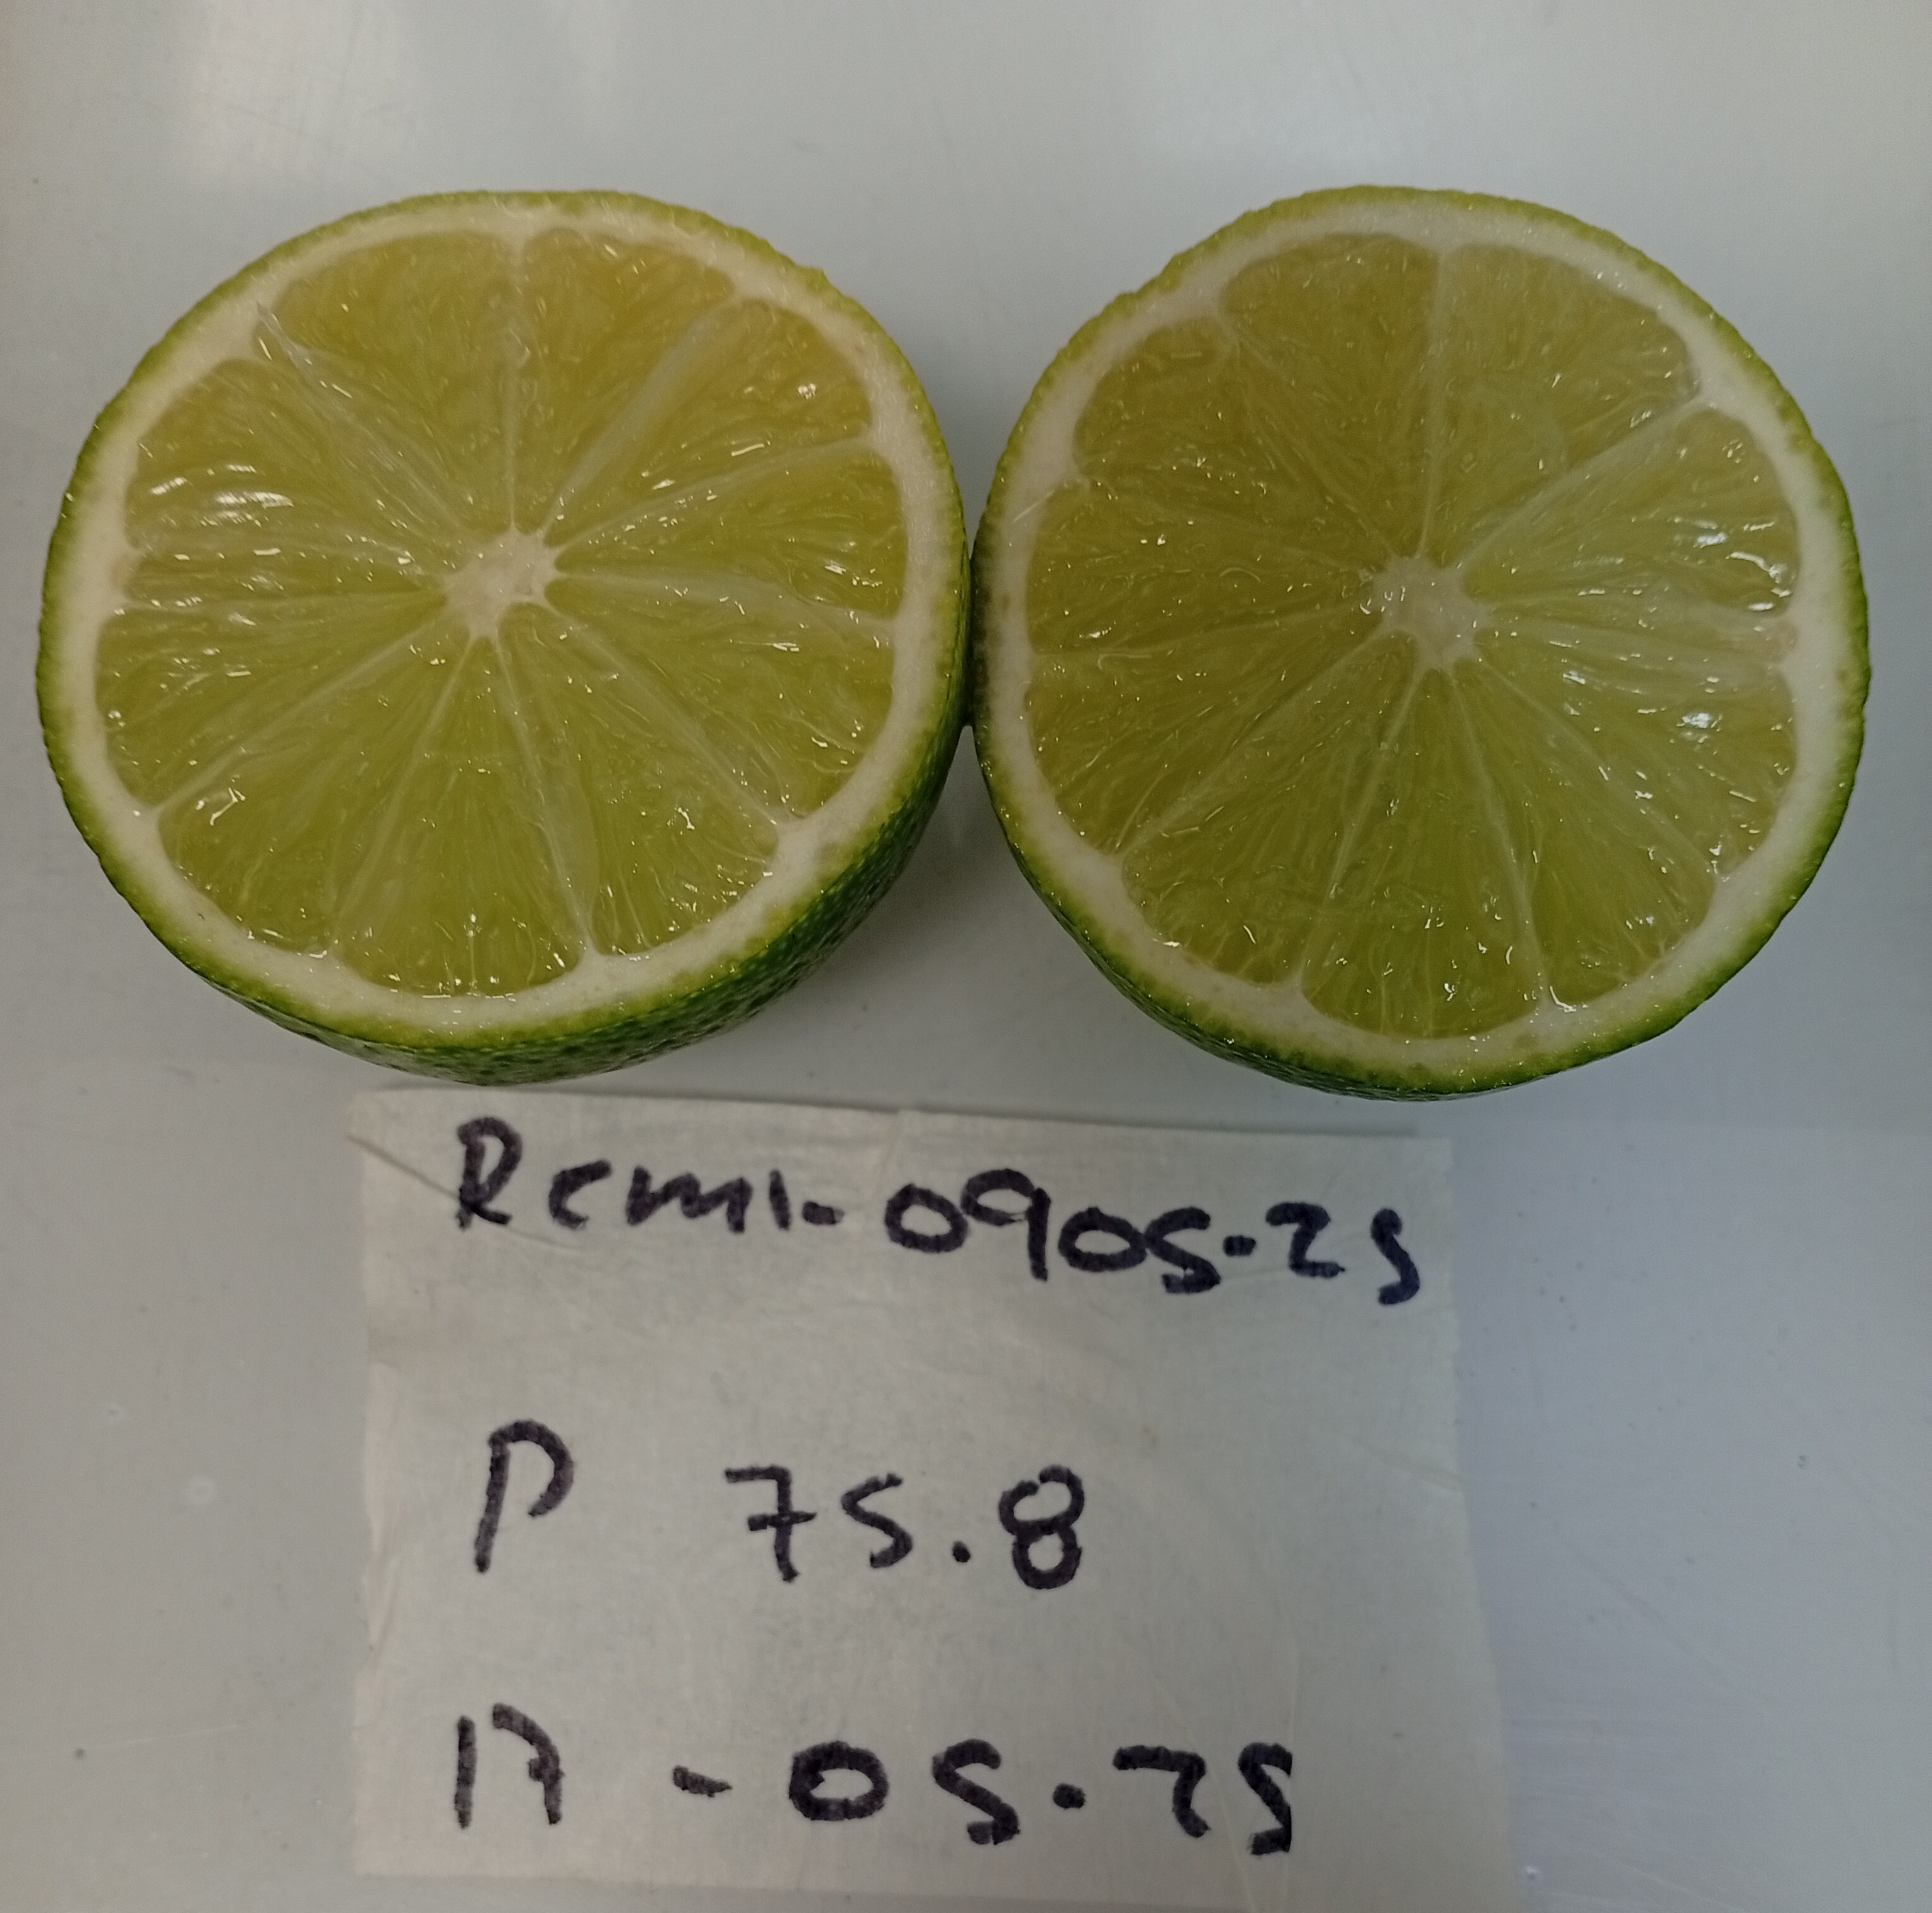 Rcml-0905-25
P 75.8
17-05-25